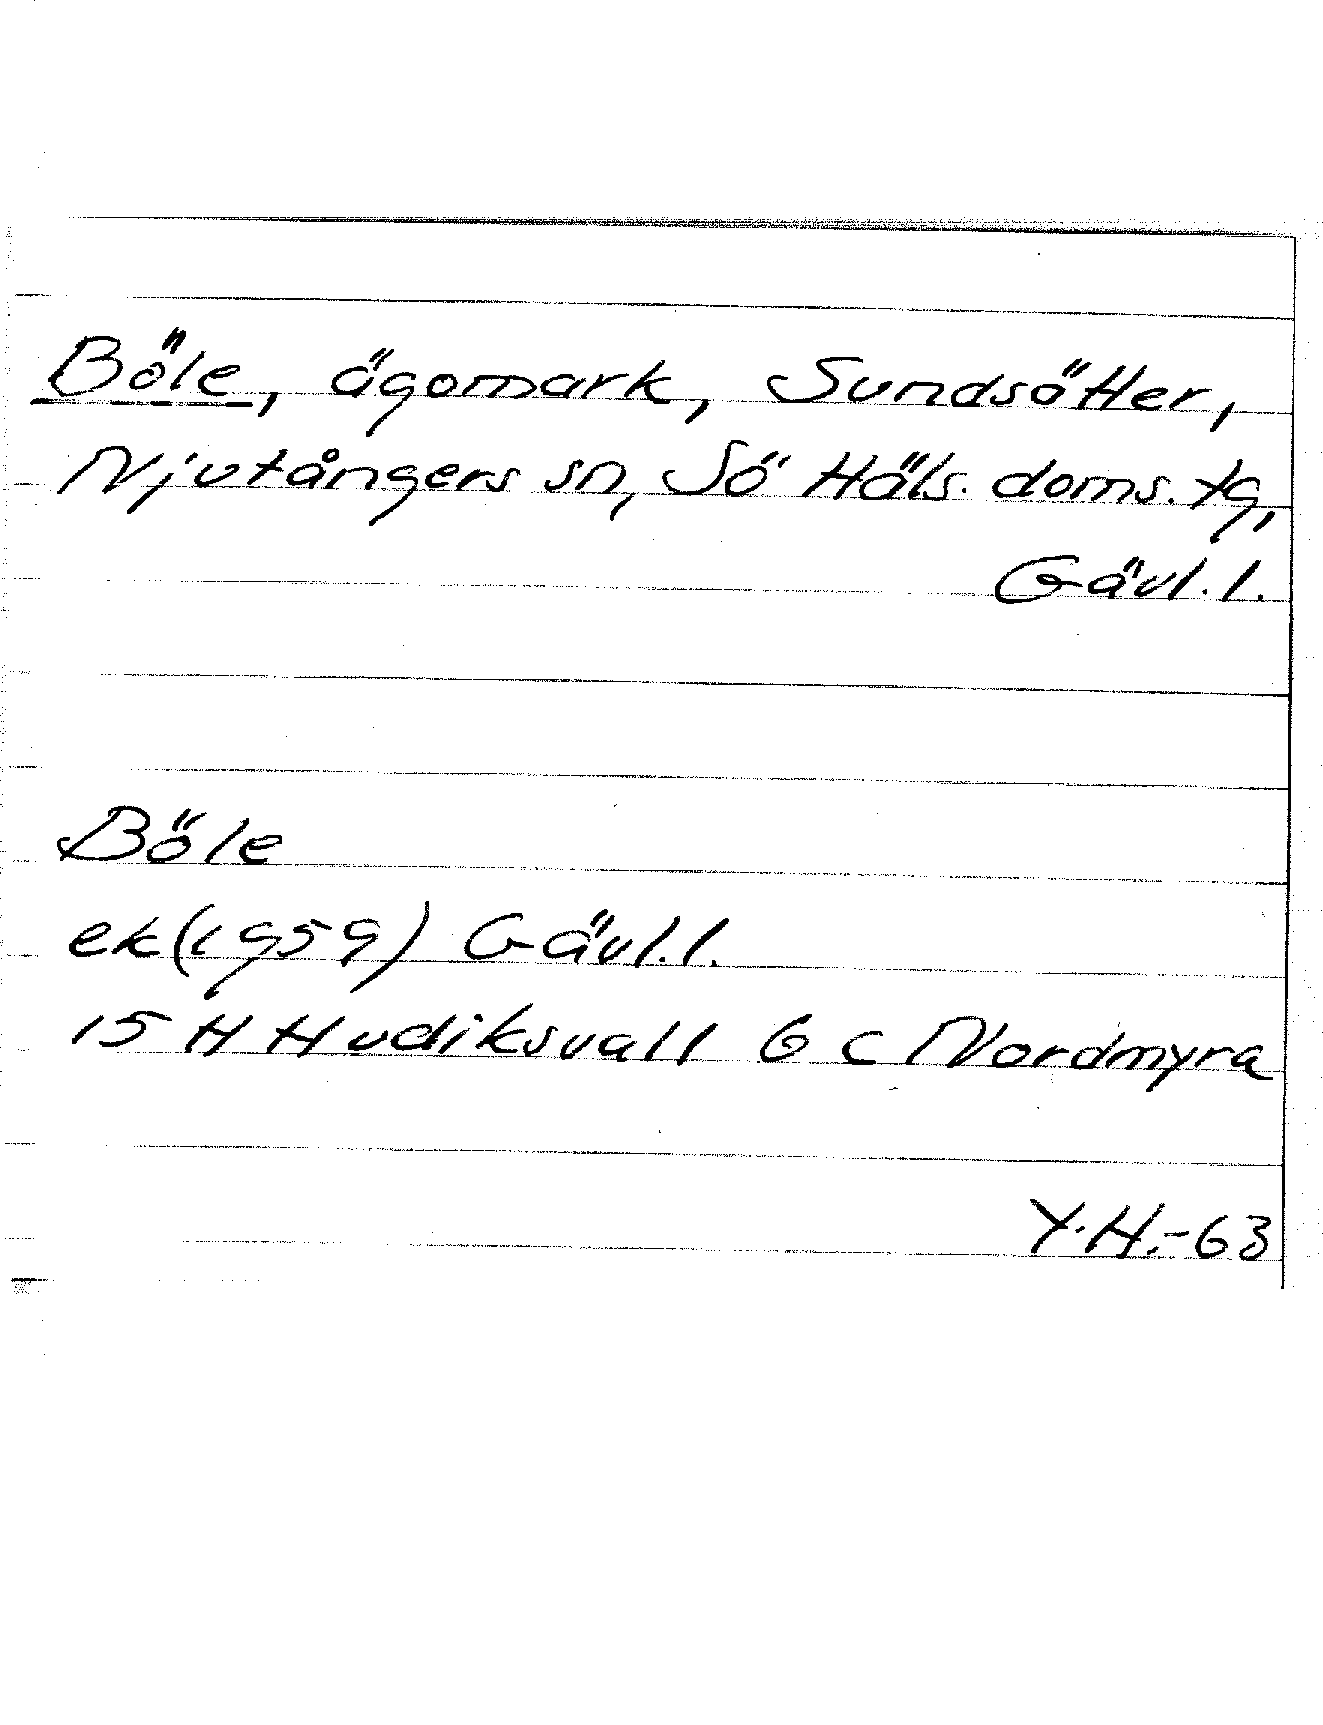 Böle, ägomark, Sundsätter,
Njutångers sn, Sö Häls. doms. tg,
Gävl. l.
Böle
ek (1959) Gävl. l.
15 H Hudiksvall 6 c Nordmyra
Y.H.-63